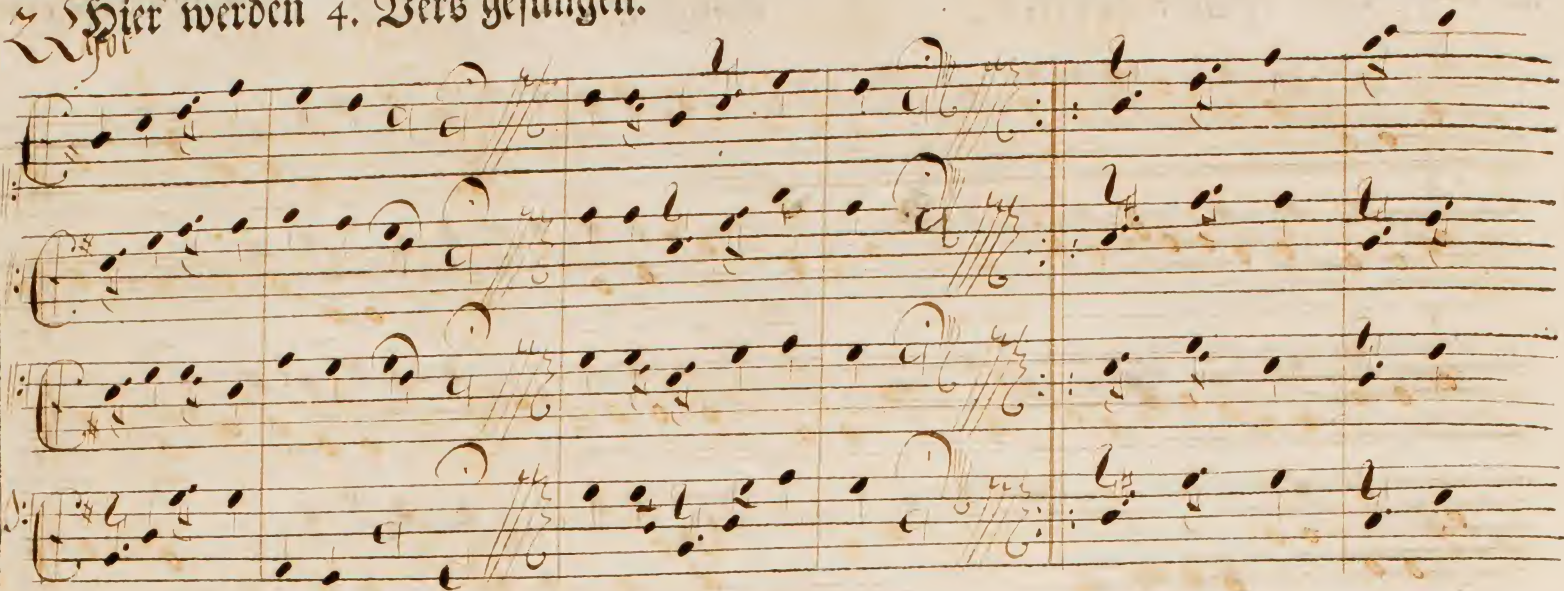 Hier werden 4. Vers gesungen.